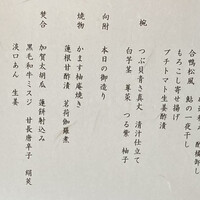 合鴨松風　鮎の一夜干し
もろこし寄せ揚げ
プチトマト生姜酢漬け
椀
つぶ貝青さ真丈　清汁仕立て
白芋茎　蓴菜　つる紫　柚子
向附
本日の御造り
焼物
かます柚庵焼き
蓮根甘酢漬　茗荷伽羅煮
焚合
加賀太胡瓜　蓮餅射込み
黒毛和牛ミスジ　甘長唐辛子　絹莢
淡口あん　生姜